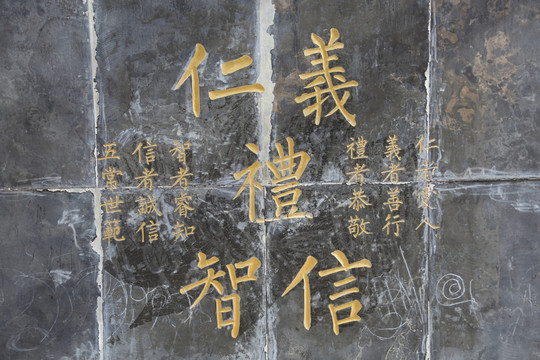 仁義
禮
智信
仁者愛人
義者善行
禮者恭敬
智者睿知
信者誠信
五當世範